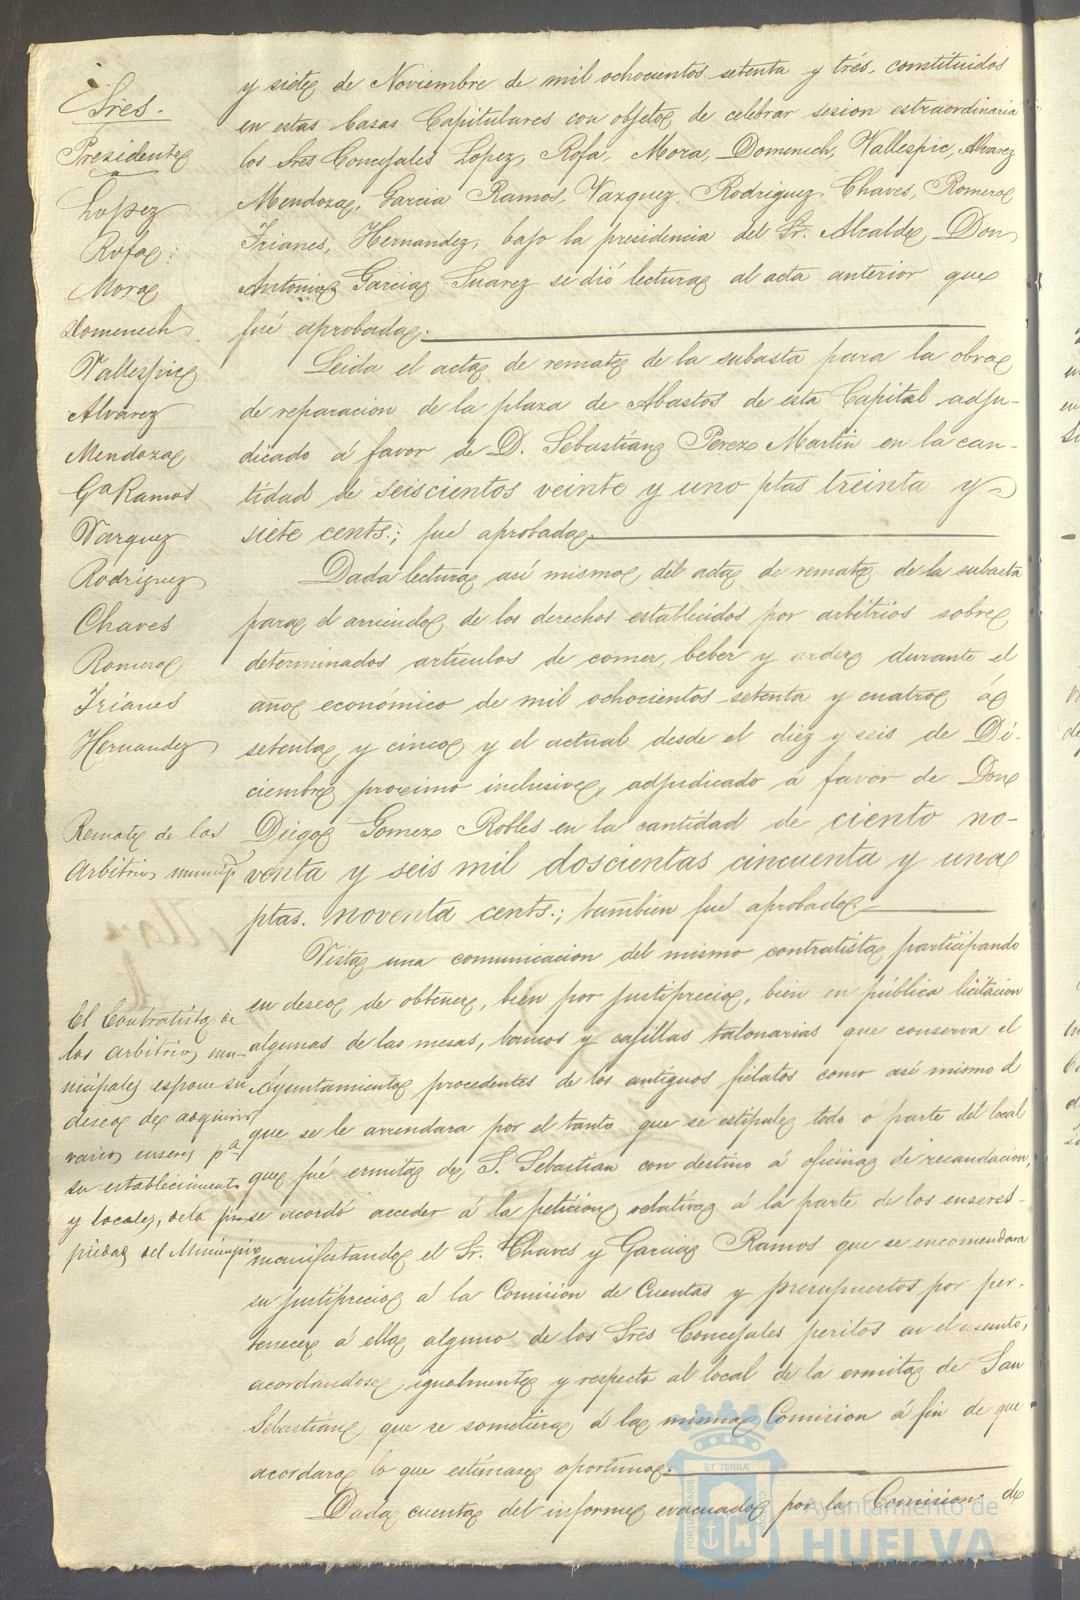 Sres.
Presidente
Lopez
Rofa
Mora
Domenech
Vallespic
Alvarez
Mendoza
Ga Ramos
Vazquez
Rodriguez
Chaves
Romero
Trianes
Hernandez
Remate de los
arbitrios
El Contratista de
los arbitrios mu-
nicipales espone su
deseo de adquirir
varios enseres pa
su establecimiento
y locales, de la pro-
piedad del Municipio
y siete de Noviembre de mil ochocientos setenta y trés, constituidos
en estas Casas Capitulares con objeto de celebrar sesion estraordinaria
los Sres Concejales Lopez, Rofa, Mora, Domenech, Vallespic, Alvarez
Mendoza, Garcia Ramos, Vazquez, Rodriguez, Chaves, Romero
Trianes, Hernandez, bajo la presidencia del Sr. Alcalde Don
Antonio Garcia Suarez se dió lectura al acta anterior que
fué aprobada.
Leida el acta de remate de la subasta para la obra
de reparacion de la plaza de Abastos de esta Capital adju-
dicado á favor de D. Sebastian Perez Martin en la can-
tidad de seiscientos veinte y uno ptas treinta y
siete cents.; fué aprobada.
Dada lectura asi mismo del acta de remate de la subasta
para el arriendo de los derechos establecidos por arbitrios sobre
determinados articulos de comer, beber y arder durante el
año económico de mil ochocientos setenta y cuatro á
setenta y cinco y el actual desde el diez y seis de Di-
ciembre procsimo inclusive, adjudicado á favor de Don
Diego Gomez Robles en la cantidad de ciento no-
venta y seis mil doscientas cincuenta y una
ptas. noventa cents.; tambien fué aprobado
Vista una comunicacion del mismo contratista participando
su deseo de obtener, bien por justiprecio, bien en pública licitacion
algunas de las mesas, bancos y casillas talonarias que conserva el
Ayuntamiento procedentes de los antiguos fielatos como asi mismo el
que se le arrendara por el tanto que se estipule todo ó parte del local
que fué ermita de S. Sebastian con destino á oficina de recaudacion,
se acordó acceder á la peticion relativa á la parte de los enseres-
manifestando el Sr. Chaves y Garcia Ramos que se encomendara
su justiprecio á la Comision de Cuentas y presupuestos por per-
tenecer á ella alguno de los Sres Concejales peritos en el asunto,
acordandose igualmente y respecto al local de la ermita de San
Sebastian, que se sometiera á la misma Comision á fin de que
acordara lo que estimase oportuno.
Dada cuenta del informe evacuado por la Comision de
Ayuntamiento de
HUELVA